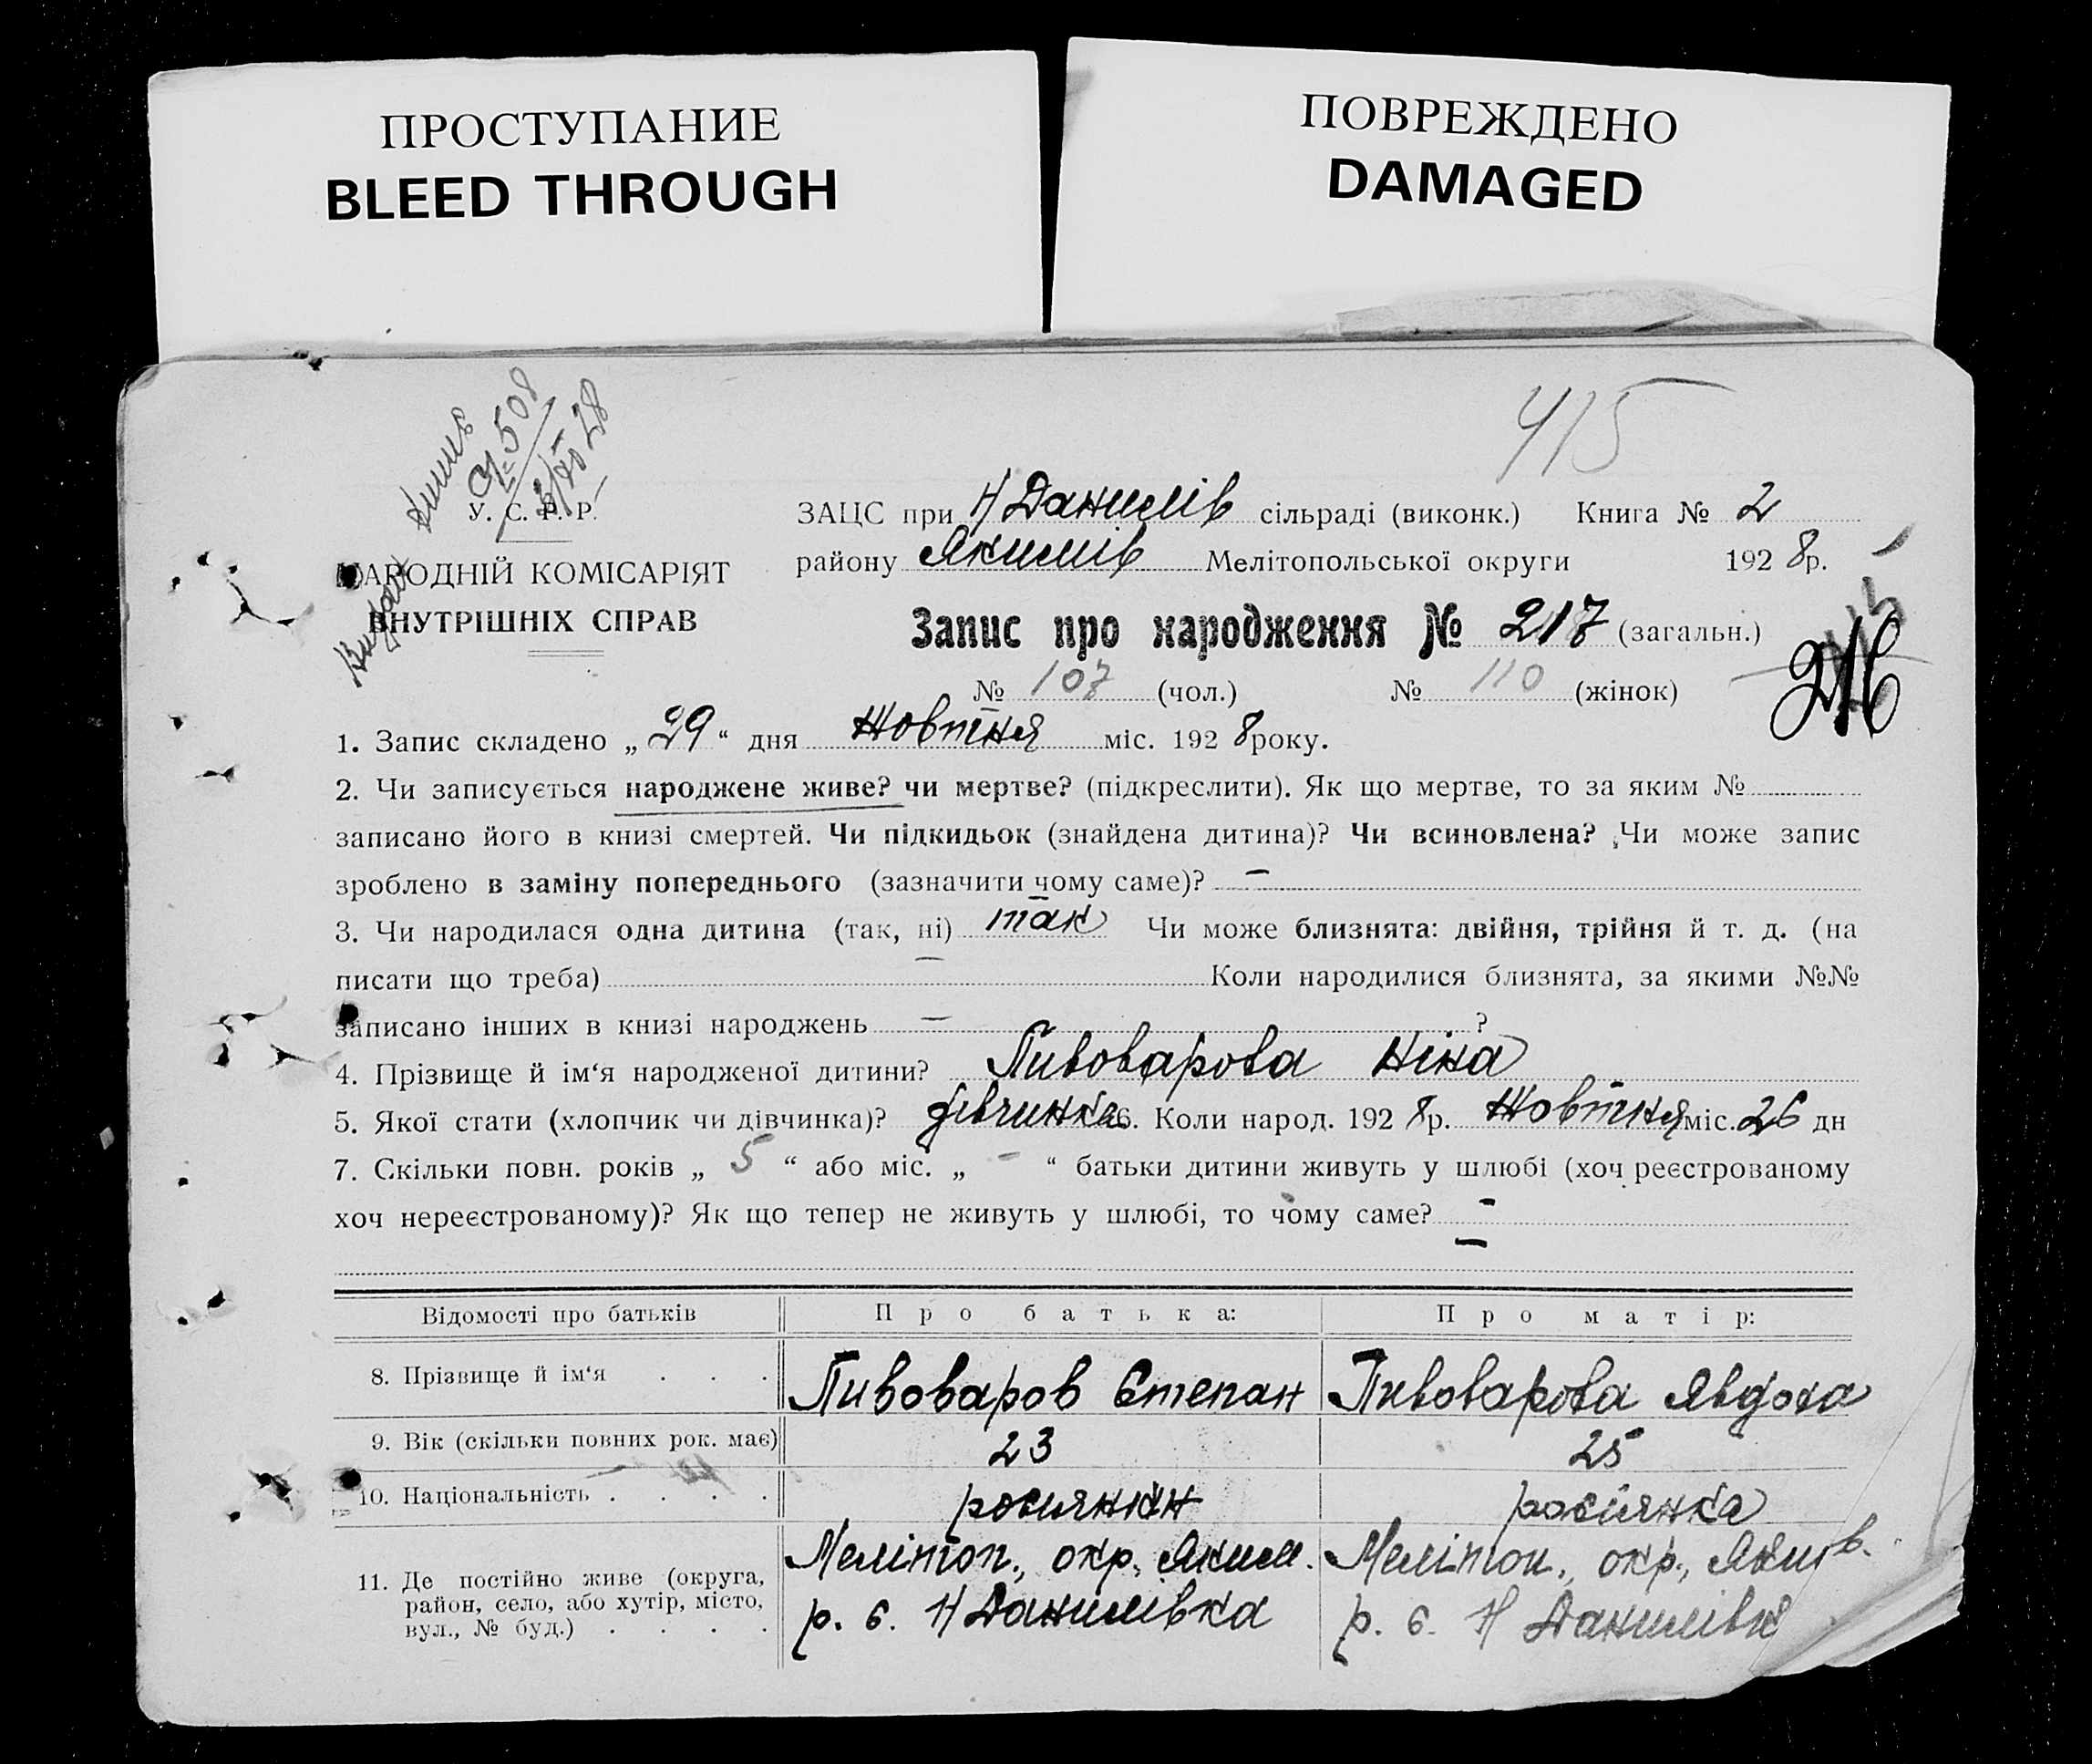 ПРОСТУПАНИЕ
BLEED THROUGH
ПОВРЕЖДЕНО
DAMAGED
415
508
28
У. С. Р. Р.
НАРОДНІЙ КОМІСАРІЯТ
ВНУТРІШНІХ СПРАВ
ЗАЦС при Н Данилів сільраді (виконк.) Книга № 2
району Якимів Мелітопольської округи 192 8р.
Запис про народження № 217 (загальн.)
№ 107 (чол.) № 110 (жінок)
1. Запис складено „ 29 “ дня Жовтня міс. 192 8року.
2. Чи записується народжене живе? чи мертве? (підкреслити). Як що мертве, то за яким №
записано його в книзі смертей. Чи підкидьок (знайдена дитина)? Чи всиновлена? Чи може запис
зроблено в заміну попереднього (зазначити чому саме)? –
3. Чи народилася одна дитина (так, ні) так Чи може близнята: двійня, трійня й т. д. (на
писати що треба) – Коли народилися близнята, за якими №№
записано інших в книзі народжень – ?
4. Прізвище й ім‘я народженої дитини? Пивоварова Ніна
5. Якої стати (хлопчик чи дівчинка)? дівчинка 6. Коли народ. 192 8р. Жовтня міс. 26 дн
7. Скільки повн. років „ 5 “ або міс. „ – “ батьки дитини живуть у шлюбі (хоч реєстрованому
хоч нереєстрованому)? Як що тепер не живуть у шлюбі, то чому саме? –
–
Відомості про батьків Про батька: Про матір:
8. Прізвище й ім‘я . . . Пивоваров Степан Пивоварова Явдоха
9. Вік (скільки повних рок. має) 23 25
10. Національність . . . . росиянин росіянка
11. Де постійно живе (округа, Меліноп., окр., Яким. Меліноп., окр.,
район, село, або хутір, місто, р. с. Н Данилівка р. с. Н Данилівка
вул., № буд.) . . . .